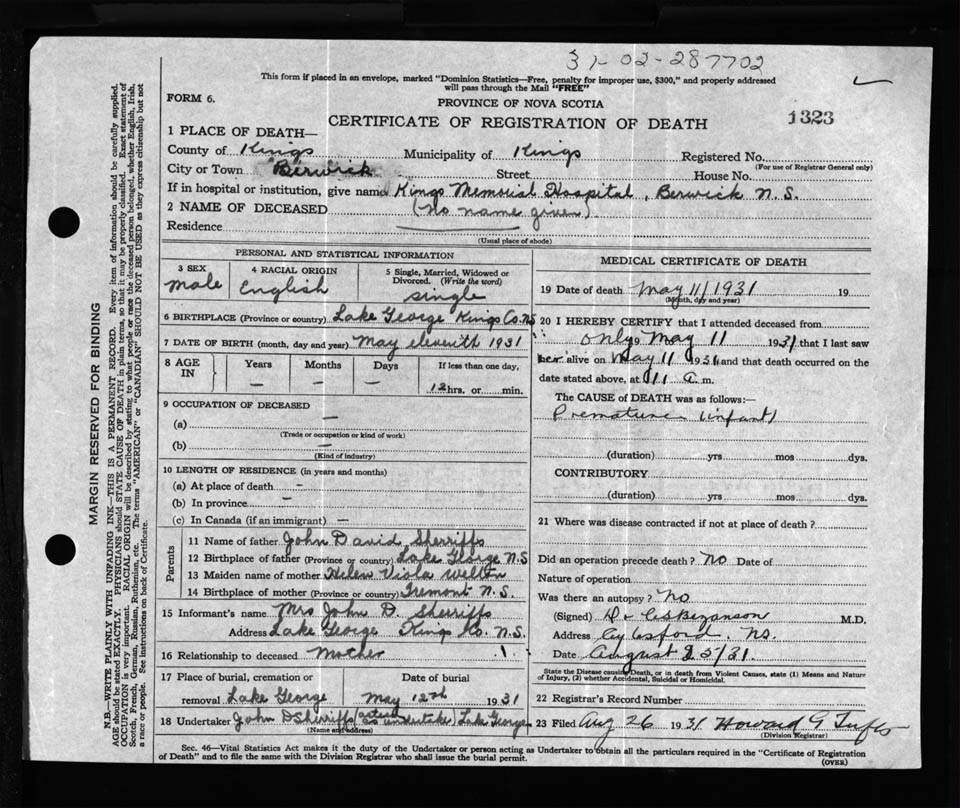 31-02-287702
This form if placed in an envelope, marked "Dominion Statistics—Free, penalty for improper use, $300," and properly addressed
will pass through the Mail "FREE"
FORM 6.
PROVINCE OF NOVA SCOTIA
CERTIFICATE OF REGISTRATION OF DEATH
1323
1 PLACE OF DEATH—
County of Kings Municipality of Kings Registered No.
(For use of Registrar General only)
City or Town Berwick Street House No.
If in hospital or institution, give name Kings Memorial Hospital, Berwick N.S.
2 NAME OF DECEASED (No name given)
Residence
(Usual place of abode)
PERSONAL AND STATISTICAL INFORMATION
3 SEX
male
4 RACIAL ORIGIN
English
5 Single, Married, Widowed or
Divorced. (Write the word)
single
6 BIRTHPLACE (Province or country) Lake George Kings Co. N.S
7 DATE OF BIRTH (month, day and year) May eleventh 1931
8 AGE
IN
Years
—
Months
—
Days
—
If less than one day,
12 hrs. or min.
9 OCCUPATION OF DECEASED
(a) —
(Trade or occupation or kind of work)
(b) —
(Kind of industry)
10 LENGTH OF RESIDENCE (in years and months)
(a) At place of death —
(b) In province —
(c) In Canada (if an immigrant) —
Parents
11 Name of father John David Sherriffs
12 Birthplace of father (Province or country) Lake George N.S
13 Maiden name of mother Helen Viola Welton
14 Birthplace of mother (Province or country) Tremont N.S.
15 Informant's name Mrs John D. Sherriffs
Address Lake George Kings Co. N.S.
16 Relationship to deceased mother
17 Place of burial, cremation or
Date of burial
removal Lake George May 12th 1931
18 Undertaker John D Sherriffs (acted as undertaker) Lake George
(Name and address)
MEDICAL CERTIFICATE OF DEATH
19 Date of death May 11/1931 19
(Month, day and year)
20 I HEREBY CERTIFY that I attended deceased from
only May 11 1931 that I last saw
her alive on May 11 1931 and that death occurred on the
date stated above, at 11 a.m.
The CAUSE of DEATH was as follows:—
Premature (infant)
(duration) yrs mos dys.
CONTRIBUTORY
(duration) yrs mos dys.
21 Where was disease contracted if not at place of death?
Did an operation precede death? No Date of
Nature of operation
Was there an autopsy? No
(Signed) M.D.
Address Aylesford, N.S.
Date August 25/31.
State the Disease causing Death, or in death from Violent Causes, state (1) Means and Nature
of Injury, (2) whether Accidental, Suicidal or Homicidal.
22 Registrar's Record Number
23 Filed Aug 26 1931 Howard G Tufts
(Division Registrar)
Sec. 46—Vital Statistics Act makes it the duty of the Undertaker or person acting as Undertaker to obtain all the particulars required in the "Certificate of Registration
of Death" and to file the same with the Division Registrar who shall issue the burial permit.
(OVER)
MARGIN RESERVED FOR BINDING
N.B.—WRITE PLAINLY WITH UNFADING INK—THIS IS A PERMANENT RECORD. Every item of information should be carefully supplied.
AGE should be stated EXACTLY. PHYSICIANS should STATE CAUSE OF DEATH in plain terms, so that it may be properly classified. Exact statement of
OCCUPATION is very important. RACIAL ORIGIN will be described by stating to what people or race the deceased person belonged, whether English, Irish,
Scotch, French, German, Russian, Ruthenian, etc. The terms "AMERICAN" or "CANADIAN" SHOULD NOT BE USED as they express citizenship but not
a race or people. See instructions on back of Certificate.